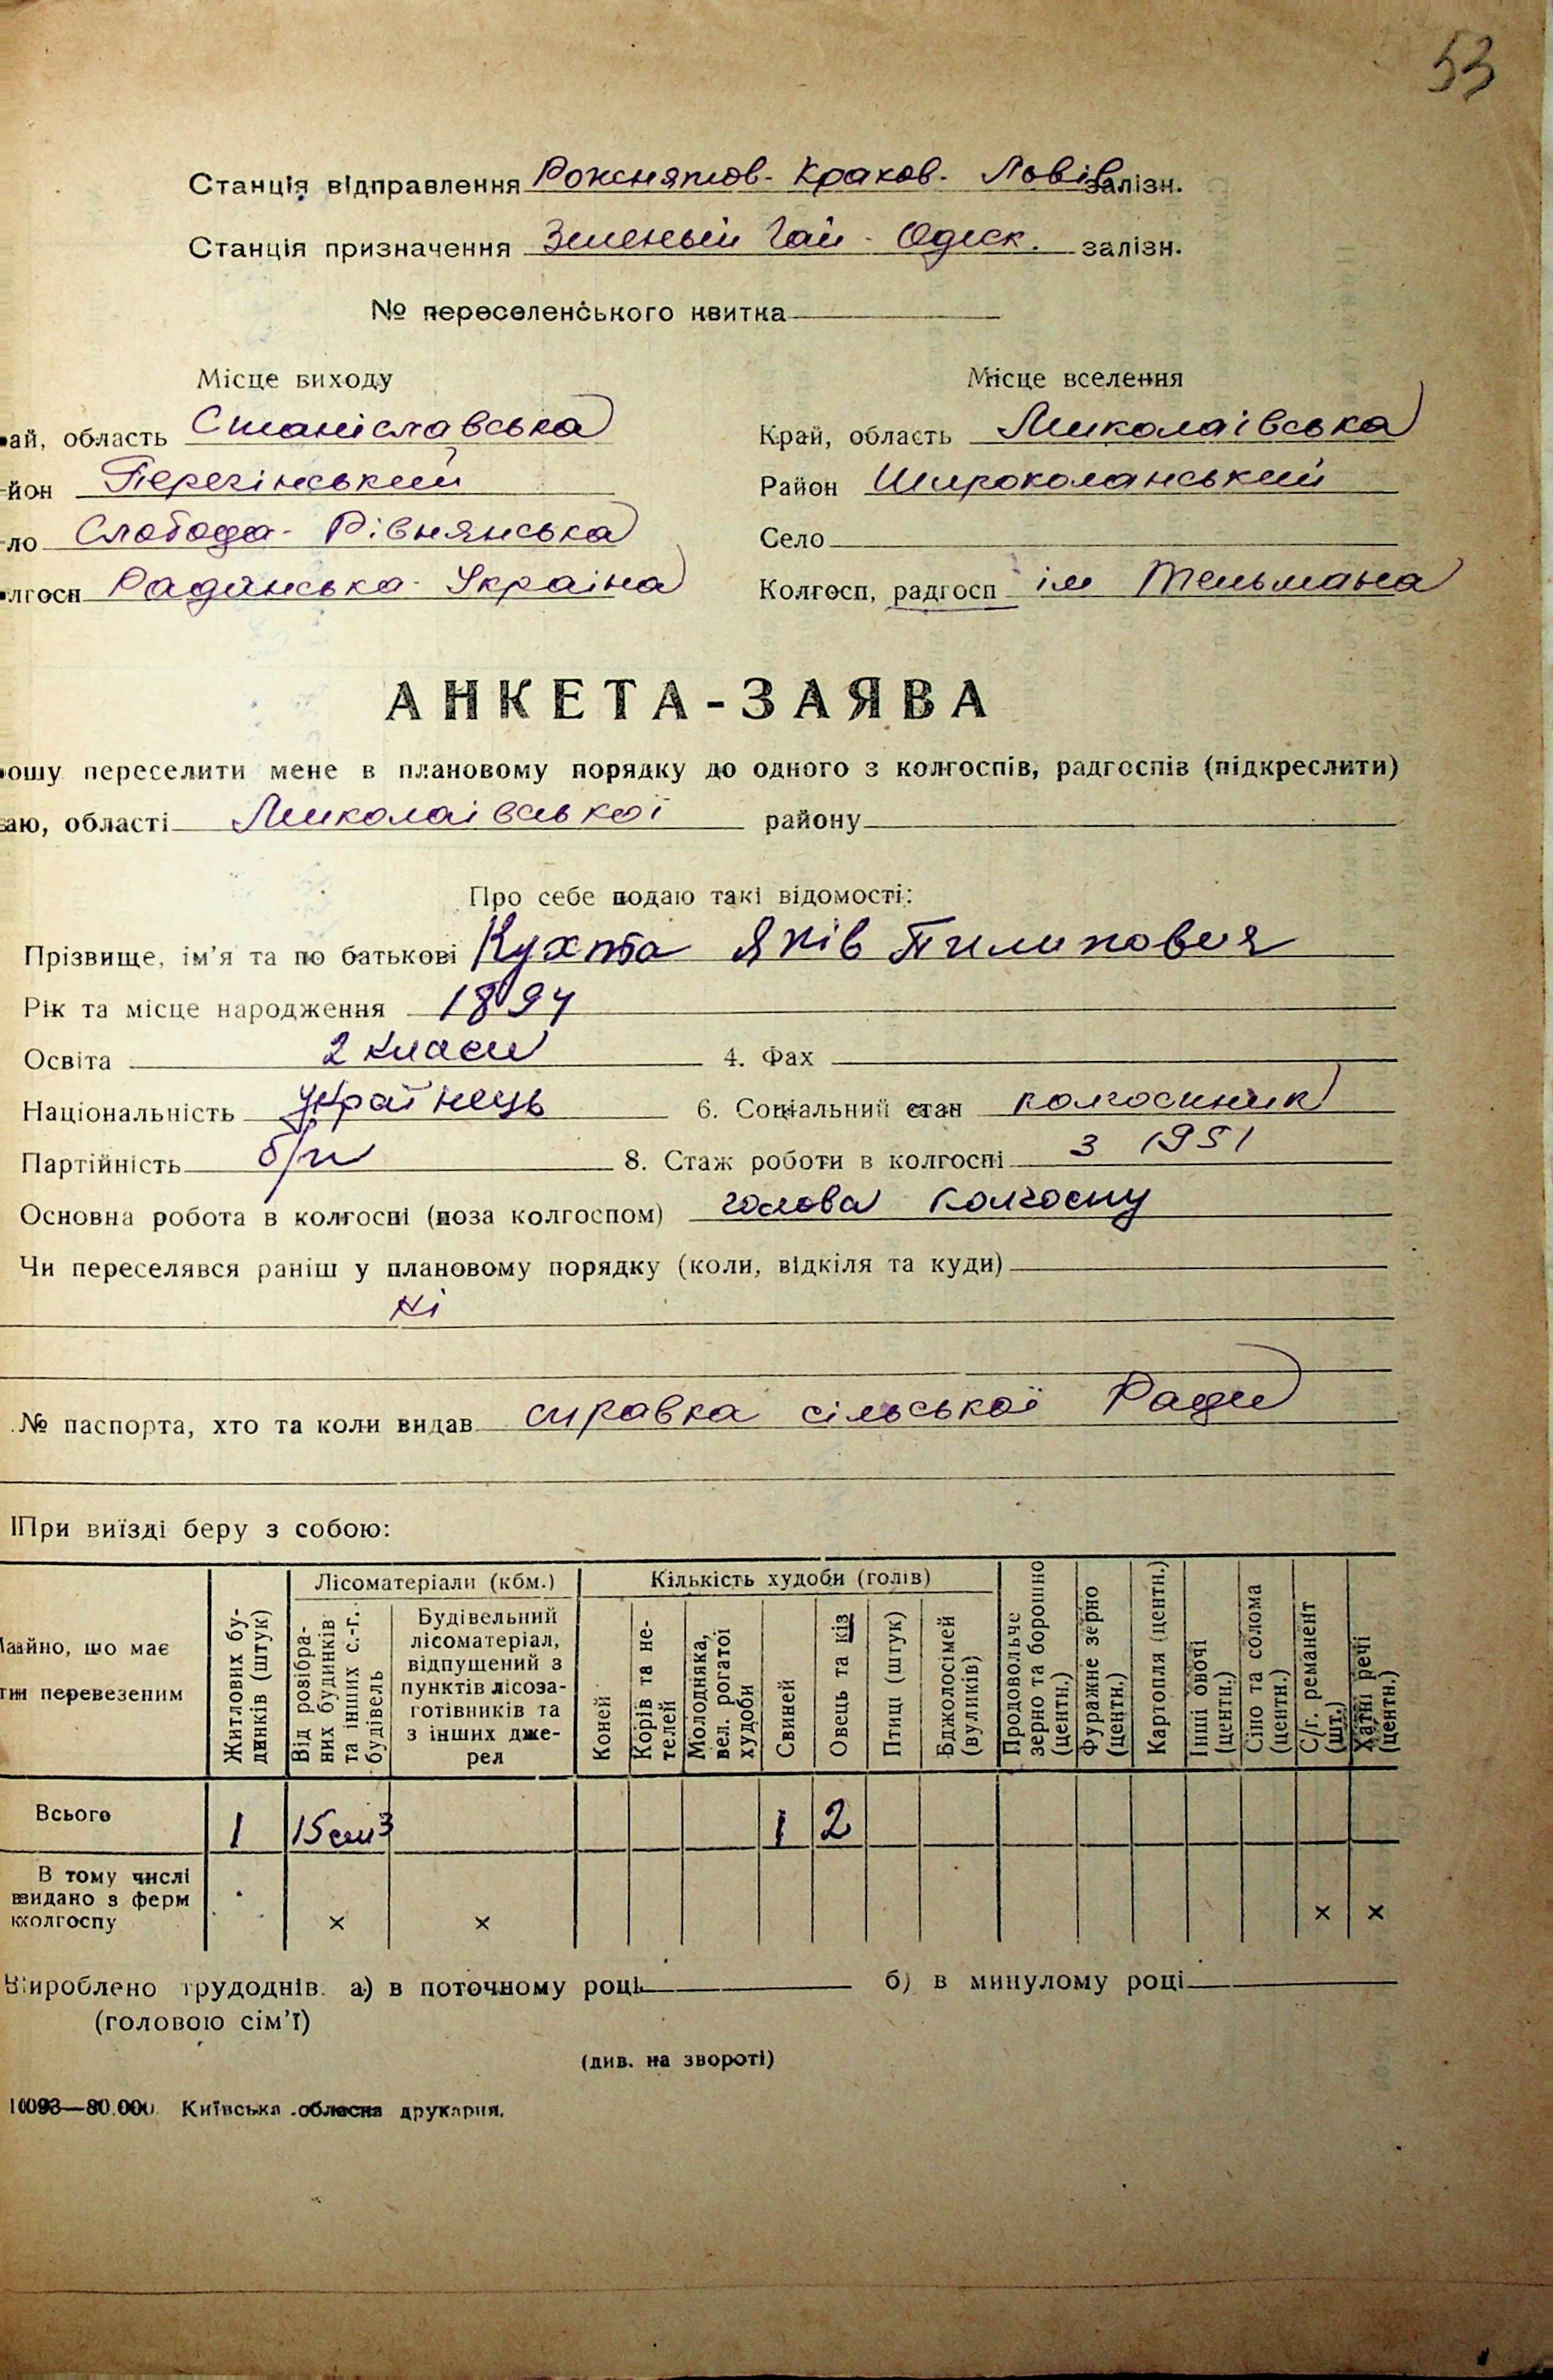 53
Станція відправлення Рожнятов - Краков - Львів залізн.
Станція призначення Зеленый Гай - Одеск. залізн.
№ переселенського квитка
Місце виходу
Місце вселення
ай, область Станіславська
Край, область Миколаівська
йон Перегінський
Район Широколанський
ло Слобода - Рівнянська
Село
лгосп Радянська - Украіна
Колгосп, радгосп ім Тельмана
АНКЕТА-ЗАЯВА
ошу переселити мене в плановому порядку до одного з колгоспів, радгоспів (підкреслити)
аю, області Миколаівської району
Про себе подаю такі відомості:
Прізвище, ім'я та по батькові Кухта Яків Пилипович
Рік та місце народження 1894
Освіта 2 класи 4. Фах
Національність українець 6. Соціальний стан колгоспник
Партійність б/п 8. Стаж роботи в колгоспі з 1951
Основна робота в колгоспі (поза колгоспом) голова колгоспу
Чи переселявся раніш у плановому порядку (коли, відкіля та куди)
ні
№ паспорта, хто та коли видав справка сільської Ради
При виїзді беру з собою:
Майно, що має
бути перевезеним
Житлових бу-
динків (штук)
Лісоматеріали (кбм.)
Від розібра-
них будинків
та інших с.-г.
будівель
Будівельний
лісоматеріал,
відпущений з
пунктів лісоза-
готівників та
з інших дже-
рел
Кількість худоби (голів)
Коней
Корів та не-
телей
Молодняка,
вел. рогатої
худоби
Свиней
Овець та кіз
Птиці (штук)
Бджолосімей
(вуликів)
Продовольче
зерно та борошно
(центн.)
Фуражне зерно
(центн.)
Картопля (центн.)
Інші овочі
(центн.)
Сіно та солома
(центн.)
С/г. реманент
(шт.)
Хатні речі
(центн.)
Всього 1 15 см3 1 2
В тому числі
видано з ферм
колгоспу × × × ×
Вироблено трудоднів: а) в поточному році б) в минулому році
(головою сім'ї)
(див. на звороті)
10093—80.000 Київська обласна друкарня.